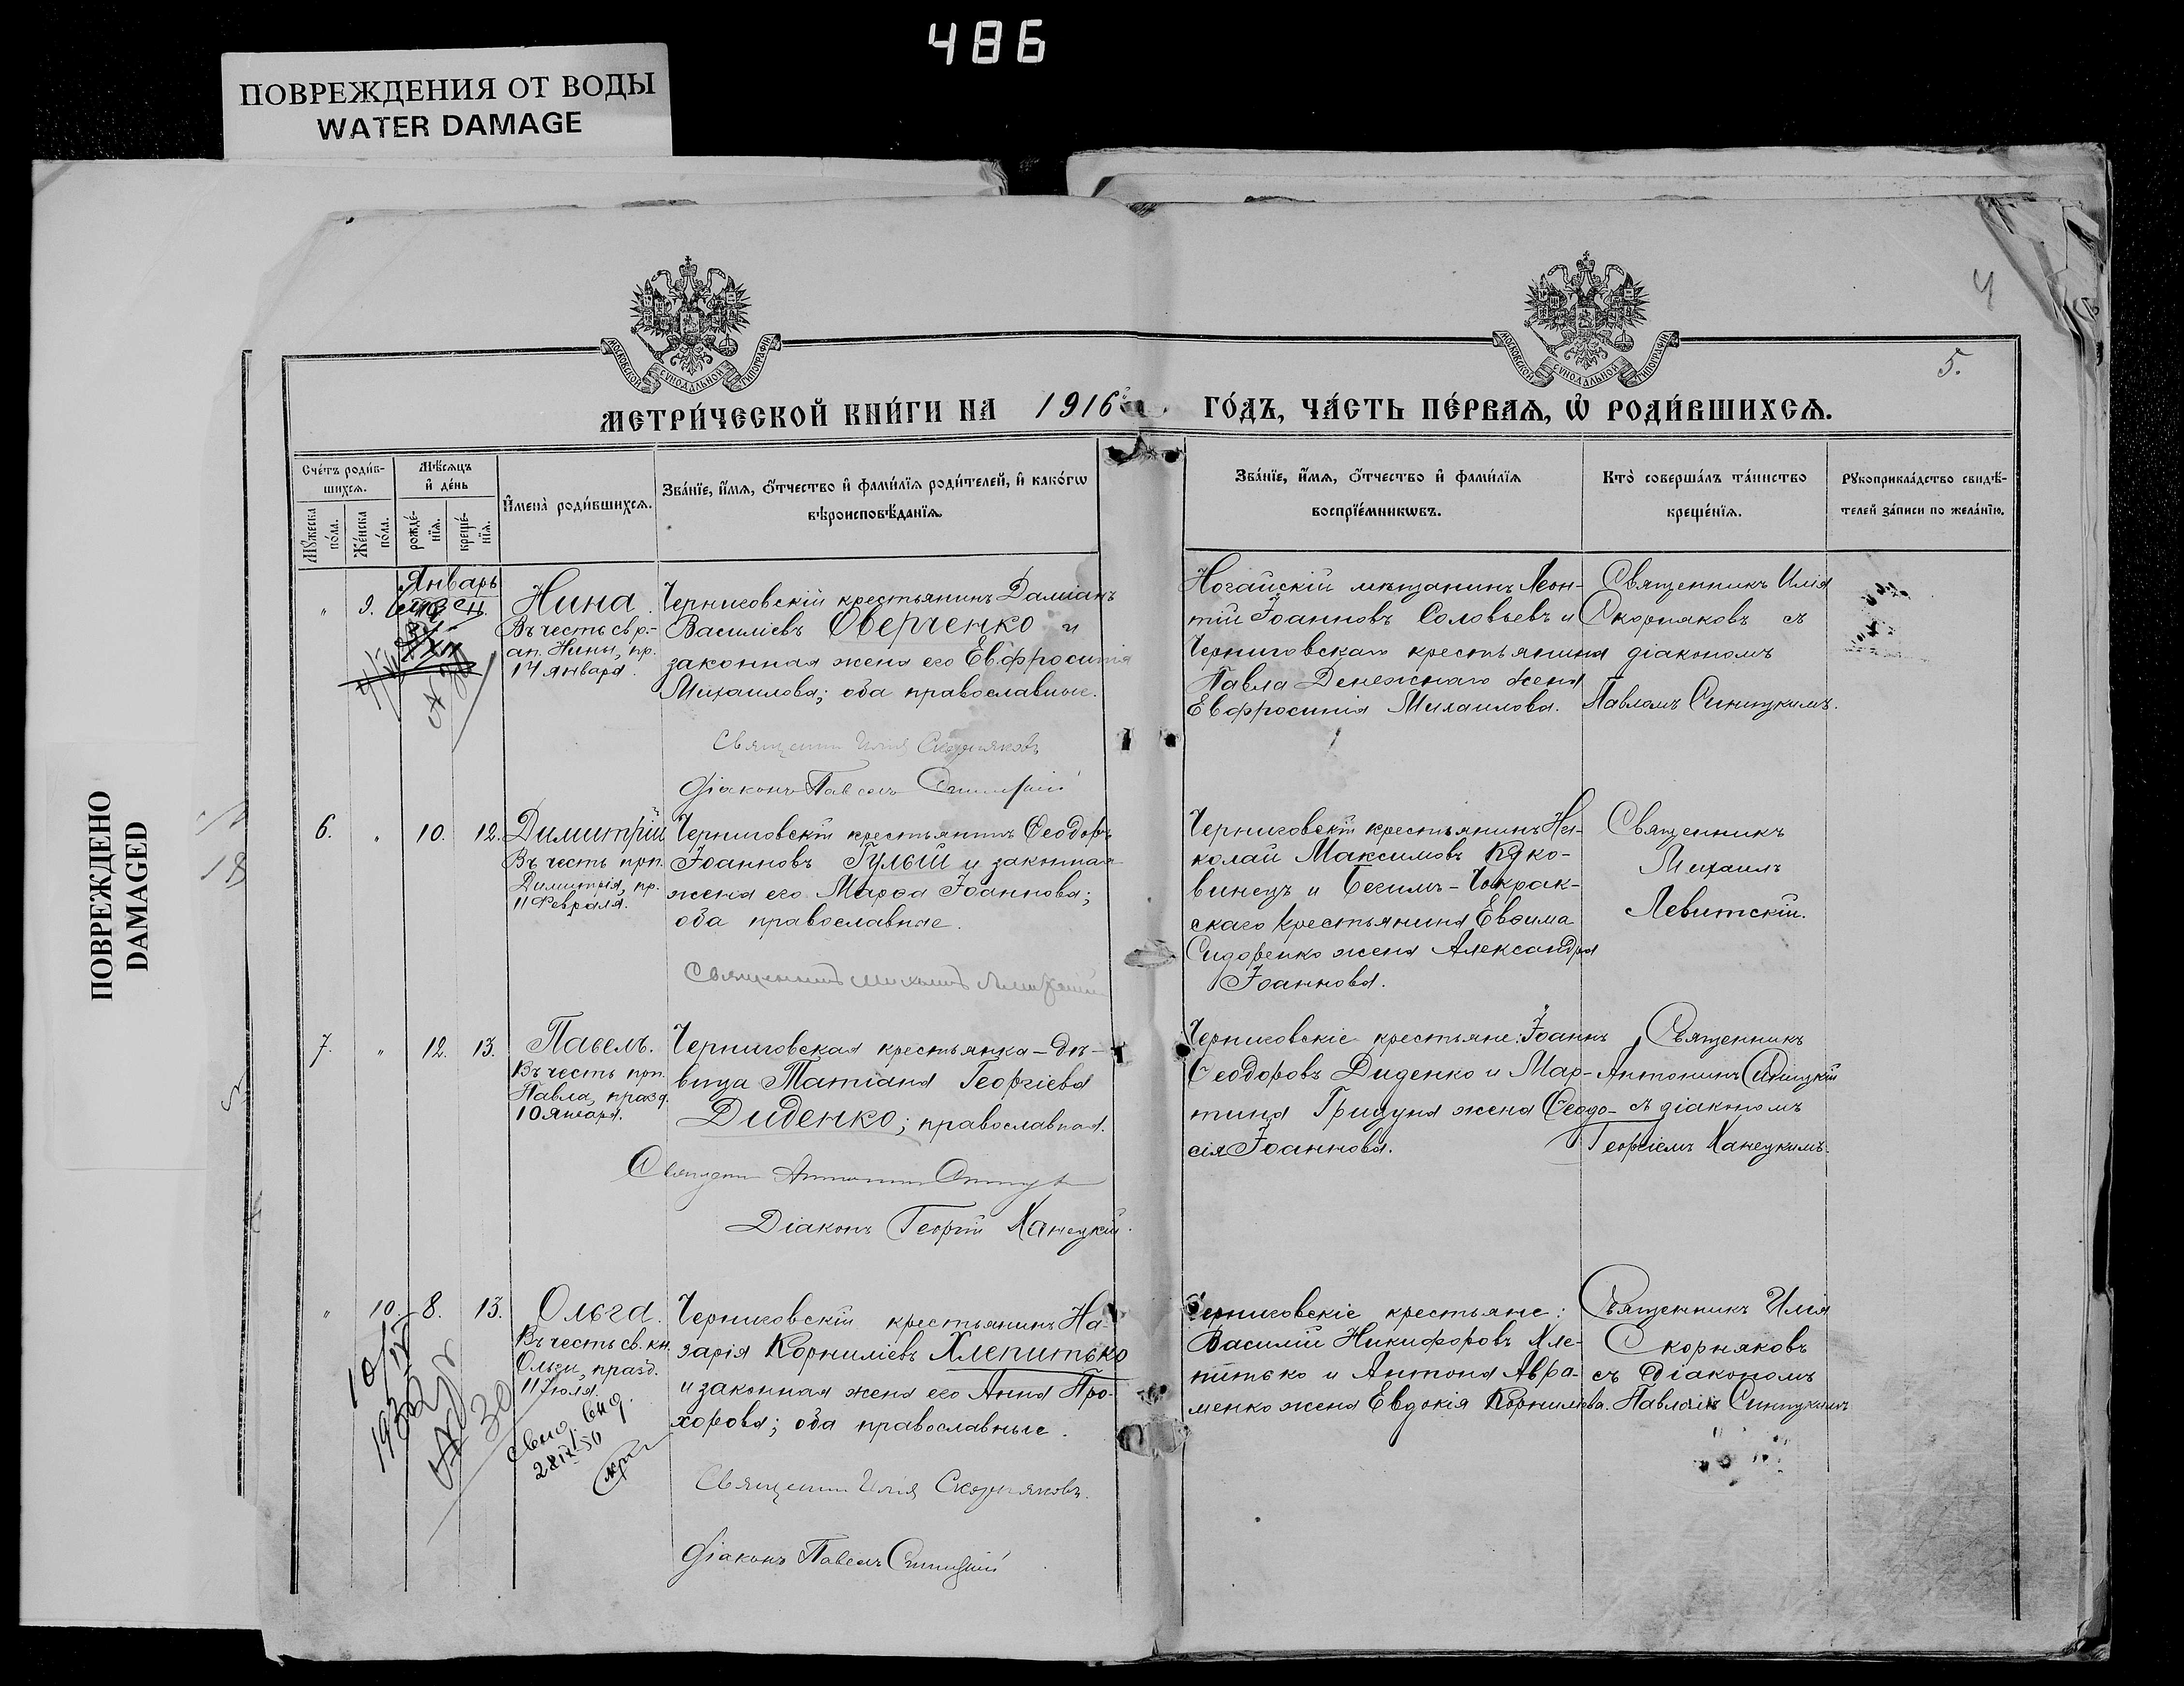 486
ПОВРЕЖДЕНИЯ ОТ ВОДЫ
WATER DAMAGE
ПОВРЕЖДЕНО
DAMAGED
18
4
5.
МОСКОВСКОЙ СѴНОДАЛЬНОЙ ТИПОГРАФІИ
МОСКОВСКОЙ СѴНОДАЛЬНОЙ ТИПОГРАФІИ
МЕТРИ́ЧЕСКОЙ КНИ́ГИ НА 1916 ГО́ДЪ, ЧА́СТЬ ПЕ́РВАѦ, Ѡ҆ РОДИ́ВШИХСѦ.
Сче́тъ роди́в-
шихсѧ.
Мꙋ́жеска по́ла.
Же́нска по́ла.
Мѣ́сѧцъ и҆ де́нь
рожде́-нїѧ.
креще́-нїѧ.
И҆мена̀ роди́вшихсѧ.
Зва́нїе, и҆́мѧ, ѻ҆́тчество и҆ фами́лїѧ роди́телей, и҆ како́гѡ
вѣроисповѣ́данїѧ.
Зва́нїе, и҆́мѧ, ѻ҆́тчество и҆ фами́лїѧ
воспрїе́мникѡвъ.
Кто̀ соверша́лъ та́инство
креще́нїѧ.
Рꙋкоприкла́дство свидѣ́-
телей за́писи по жела́нїю.
Январь
" 9.
Нина.
Въ честь св. р.-
ап. Нины, пр.
14 января.
Черниговскій крестьянинъ Даміанъ
Василіевъ Оверченко и
законная жена его Евфросинія
Михаилова; оба православные.
Священникъ Илія Скорняковъ
Діаконъ Павелъ Синицкій
Ногайскій мѣщанинъ Леон-
тій Іоанновъ Соловьевъ и
Черниговскаго крестьянина
Павла Денежнаго жена
Евфросинія Михаилова.
Священникъ Илія
Скорняковъ съ
діакономъ
Павломъ Синицкимъ.
6. " 10. 12.
Димитрій
Въ честь прп.
Димитрія, пр.
11 Февраля.
Черниговскій крестьянинъ Ѳеодоръ
Іоанновъ Гулый и законная
жена его Марѳа Іоаннова;
оба православные.
Священникъ Михаилъ Левитскій
Черниговскій крестьянинъ Ни-
колай Максимовъ
винецъ и Бегимъ-Чокрак-
скаго крестьянина Евѳима
Сидоренко жена Александра
Іоаннова.
Священникъ
Михаилъ
Левитскій.
7. " 12. 13.
Павелъ.
Въ честь прп.
Павла, празд.
10 Января.
Черниговская крестьянка-дѣ-
вица Татіана Георгіева
Диденко; православная.
Священ Антонинъ Синицкій
Діаконъ Георгій Ханецкій.
Черниговскіе крестьяне: Іоаннъ
Ѳеодоровъ Диденко и Мар-
тина Грицуна жена Ѳеодо-
сія Іоаннова.
Священникъ
Антонинъ Синицкій
съ діакономъ
Георгіемъ Ханецкимъ.
" 10. 8. 13.
Ольга.
Въ честь св. кн.
Ольги, празд.
11 Іюля.
10/IV
1932 г
30
28 IX 50
Черниговскій крестьянинъ На-
зарія Корниліевъ Хлепитько
и законная жена его Анна Про-
хорова; оба православные.
Священникъ Илія Скорняковъ.
Діаконъ Павелъ Синицкій
Черниговскіе крестьяне:
Василій Никифоровъ Хле-
питько и Антона Авра-
менко жена Евдокія Корниліева.
Священникъ Илія
Скорняковъ
съ діакономъ
Павломъ Синицкимъ